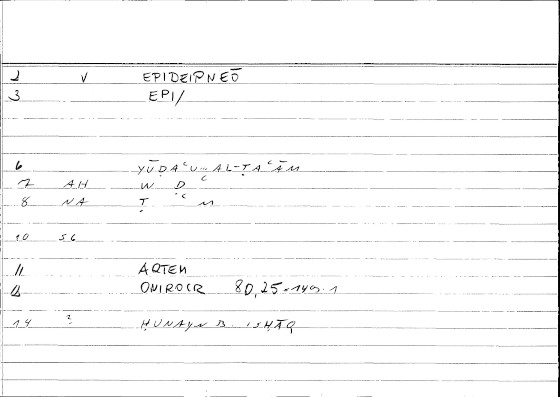 2 V EPIDEIPNEŌ
3 EPI/
6 YŪḌAʿU... AL-ṬAʿĀM
7 AH W Ḍ ʿ
8 NA Ṭ ʿ M
10 56
11 ARTEM
12 ONIROCR 80,25-149.1
14 ? ḤUNAYN B. ISḤĀQ